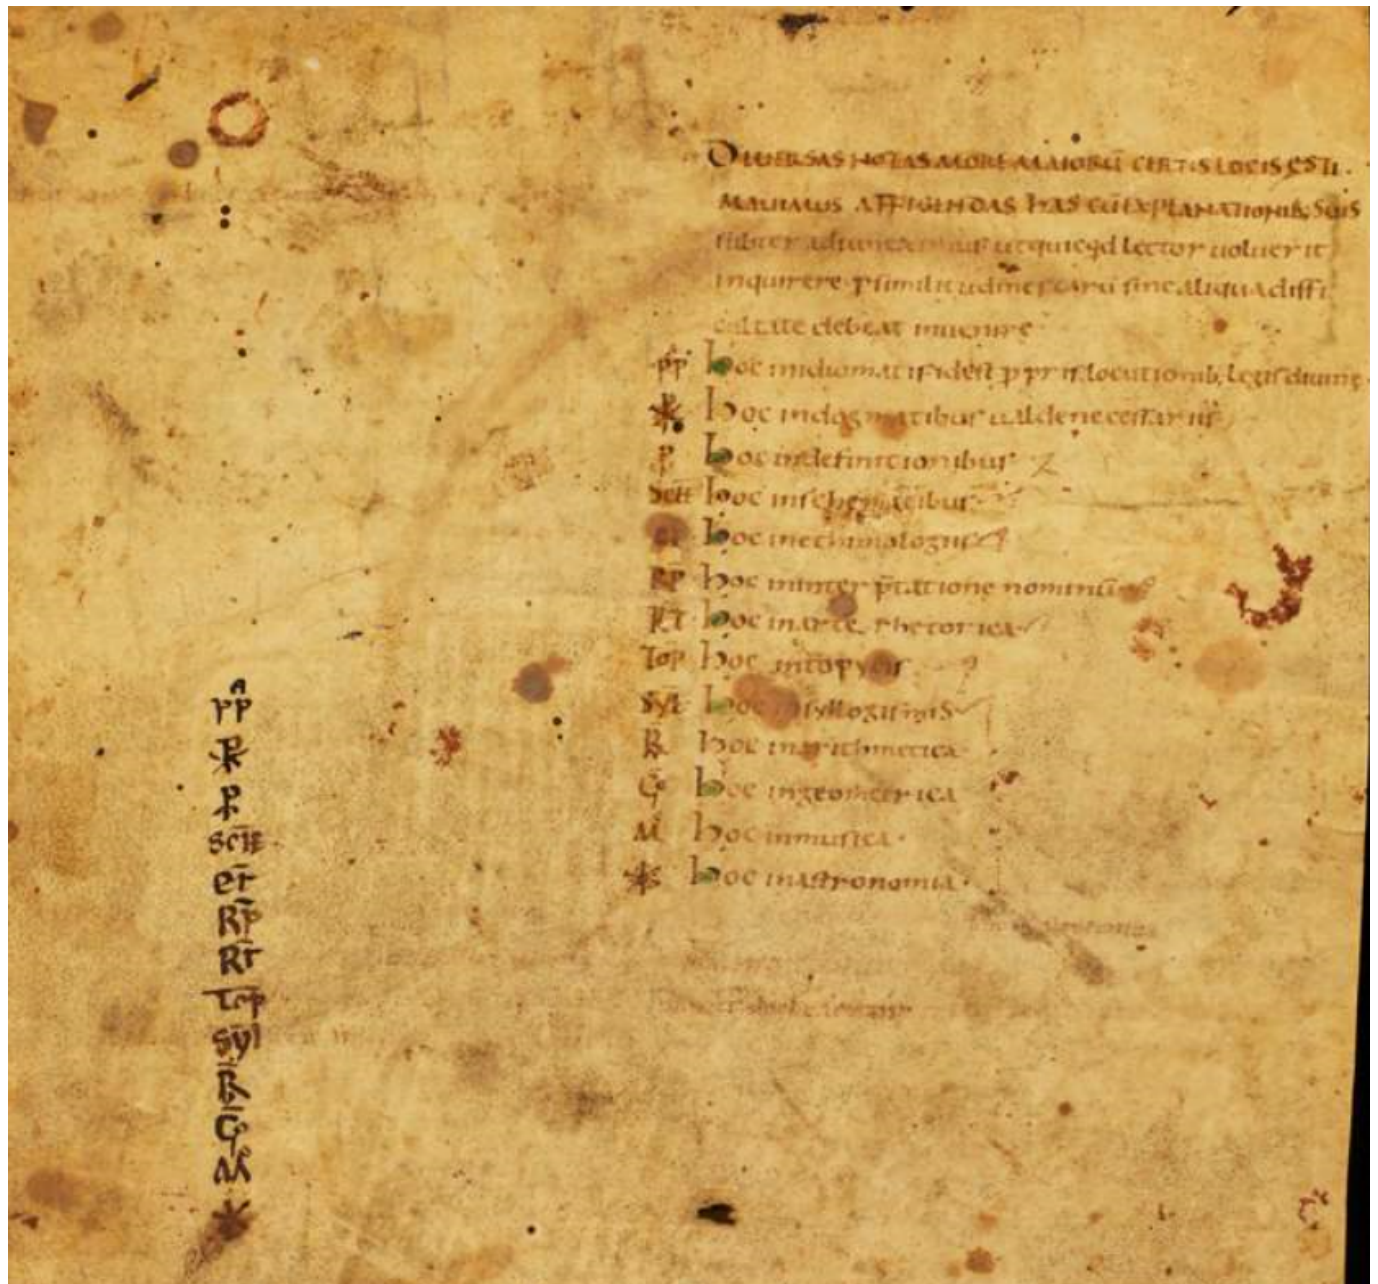 DIUERSAS NOTAS MORE MAIORŪ CERTIS LOCIS ESTI
MAUIMUS AFFIGENDAS HAS CŪ EXPLANATIONIB; SUIS
subter adiunximus ut quicqd lector uoluerit
inquirere p similitudines earū sine aliqua diffi
cultate debeat inuenire
pp̄ hoc in idiomatis id est p̱pr iis locutionib; legis diuinę
hoc in dogmatibus ualde necessariis
ꝑ hoc in definitionibus
SCH̄ hoc in schematibus
et̄ hoc in ethimologiis
RP̄ hoc in inter p̄tatione nominū
RT̄ hoc in arte rhetorica
TOP̄ hoc in topycis
SYL̄ hoc in syllogismis
R̄ hoc in arithmetica
Ḡ hoc in geometrica
M̄ hoc in musica
hoc in astronomia
pp̄
ꝑ
SCH̄
et̄
RP̄
RT̄
Top̄
SyL̄
R̄
Ḡ
M̄